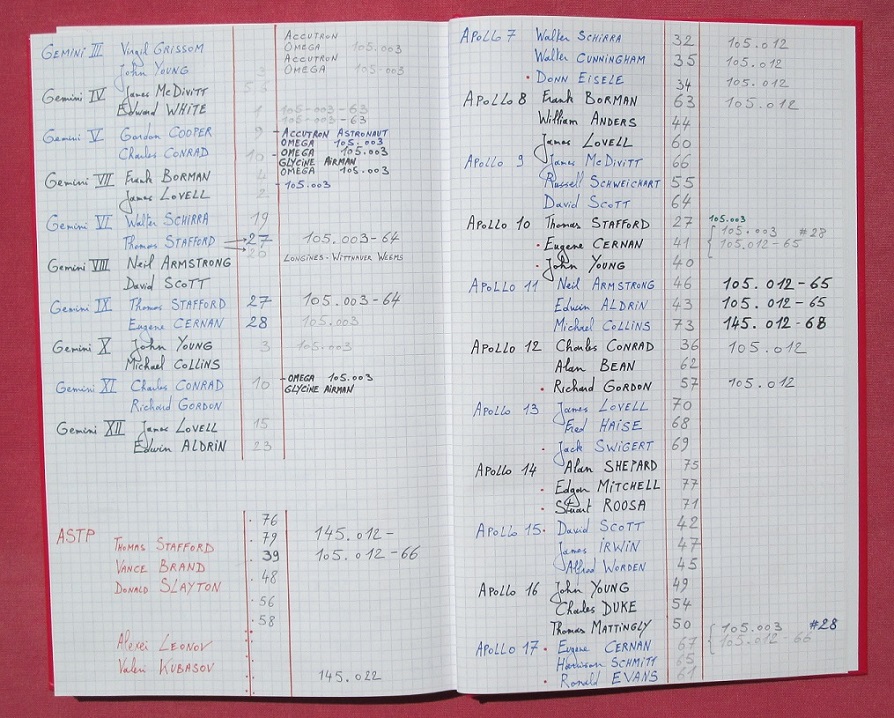 ACCUTRON
GEMINI III Virgil GRISSOM OMEGA 105.003
ACCUTRON
John YOUNG 3 OMEGA 105.003
Gemini IV James McDIVITT
Edward WHITE 1 105-003-63
105-003-63
Gemini V Gordon COOPER 9 - ACCUTRON ASTRONAUT
OMEGA 105.003
Charles CONRAD 10 - OMEGA 105.003
GLYCINE AIRMAN
Gemini VII Frank BORMAN 4 OMEGA 105.003
James LOVELL 2 - 105.003
Gemini VI Walter SCHIRRA 19
Thomas STAFFORD 27 105.003-64
Gemini VIII Neil ARMSTRONG 26 LONGINES-WITTNAUER WEEMS
David SCOTT
Gemini IX Thomas STAFFORD 27 105.003-64
Eugene CERNAN 28 105.003
Gemini X John YOUNG 3 105.003
Michael COLLINS
Gemini XI Charles CONRAD 10 - OMEGA 105.003
GLYCINE AIRMAN
Richard GORDON
Gemini XII James LOVELL 15
Edwin ALDRIN 23
. 76
ASTP . 79 145.012-
THOMAS STAFFORD . 39 105.012-66
VANCE BRAND . 48
DONALD SLAYTON
. 56
. 58
Alexei LEONOV
Valeri KUBASOV 145.022
APOLLO 7 Walter SCHIRRA 32 105.012
Walter CUNNINGHAM 35 105.012
. DONN EISELE 34 105.012
APOLLO 8 Frank BORMAN 63 105.012
William ANDERS 44
James LOVELL 60
APOLLO 9 James McDIVITT 66
Russell SCHWEICKART 55
David SCOTT 64
APOLLO 10 Thomas STAFFORD 27 105.003
105.003 #28
. Eugene CERNAN 41 105.012-65
. John YOUNG 40
APOLLO 11 Neil ARMSTRONG 46 105.012-65
Edwin ALDRIN 43 105.012-65
Michael COLLINS 73 145.012-68
APOLLO 12 Charles CONRAD 36 105.012
Alan BEAN 62
. Richard GORDON 57 105.012
APOLLO 13 James LOVELL 70
Fred HAISE 68
. Jack SWIGERT 69
APOLLO 14 Alan SHEPARD 75
. Edgar MITCHELL 77
. Stuart ROOSA 71
APOLLO 15 . David SCOTT 42
James IRWIN 47
Alfred WORDEN 45
APOLLO 16 John YOUNG 49
Charles DUKE 54
Thomas MATTINGLY 50 105.003 #28
APOLLO 17 . Eugene CERNAN 67 105.012-66
Harrison SCHMITT 65
. Ronald EVANS 61